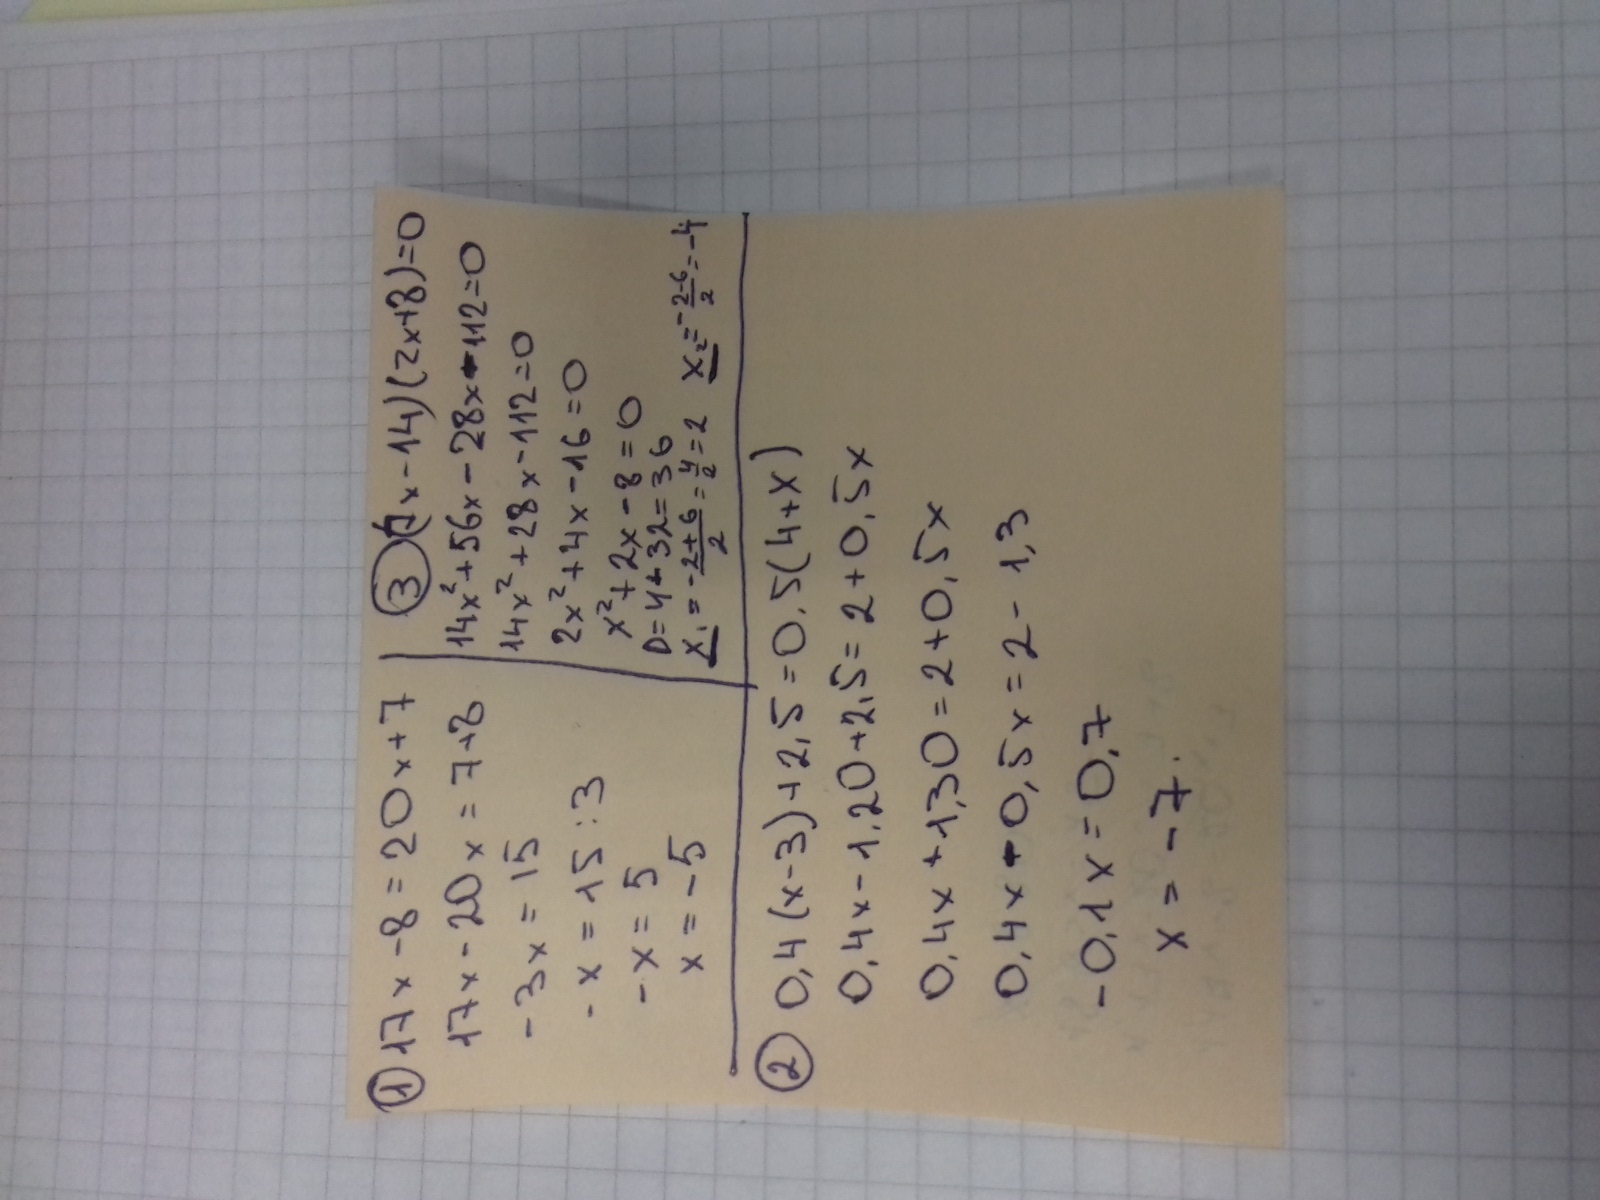 ① 17x-8=20x+7
17x-20x=7+8
-3x=15
-x=15:3
-x=5
x=-5
③ (7x-14)(2x+8)=0
14x²+56x-28x-112=0
14x²+28x-112=0
2x²+4x-16=0
x²+2x-8=0
D=4+32=36
x₁=-2+6/2=4/2=2 x₂=-2-6/2=-4
② 0,4(x-3)+2,5=0,5(4+x)
0,4x-1,20+2,5=2+0,5x
0,4x+1,30=2+0,5x
0,4x-0,5x=2-1,3
-0,1x=0,7
x=-7.